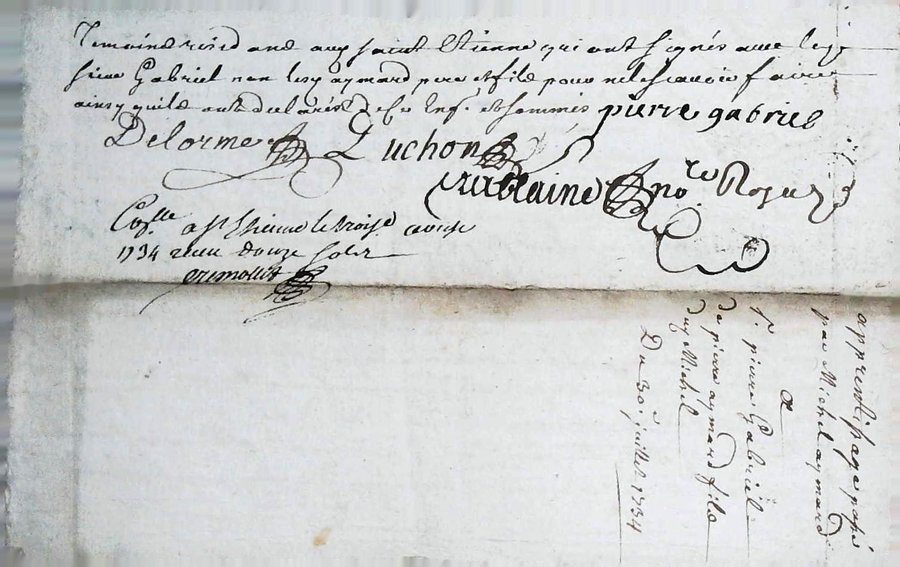 temoins residans aud saint Etienne qui ont signés avec ledt
sieur Gabriel non lesd aymard pere et fils pour ne le scavoir faire
ainsy quils ont declarés de ce enqs et sommés pierre gabriel
Delorme Luchon
no.re Royal
Con.lle a St Etienne le treize aoust
1734 receu douze sols
apprentissage passé
par Michel aymard
a
sr. pierre Gabriel
de pierre aymard fils
dud Michel
Du 30e juillet 1734